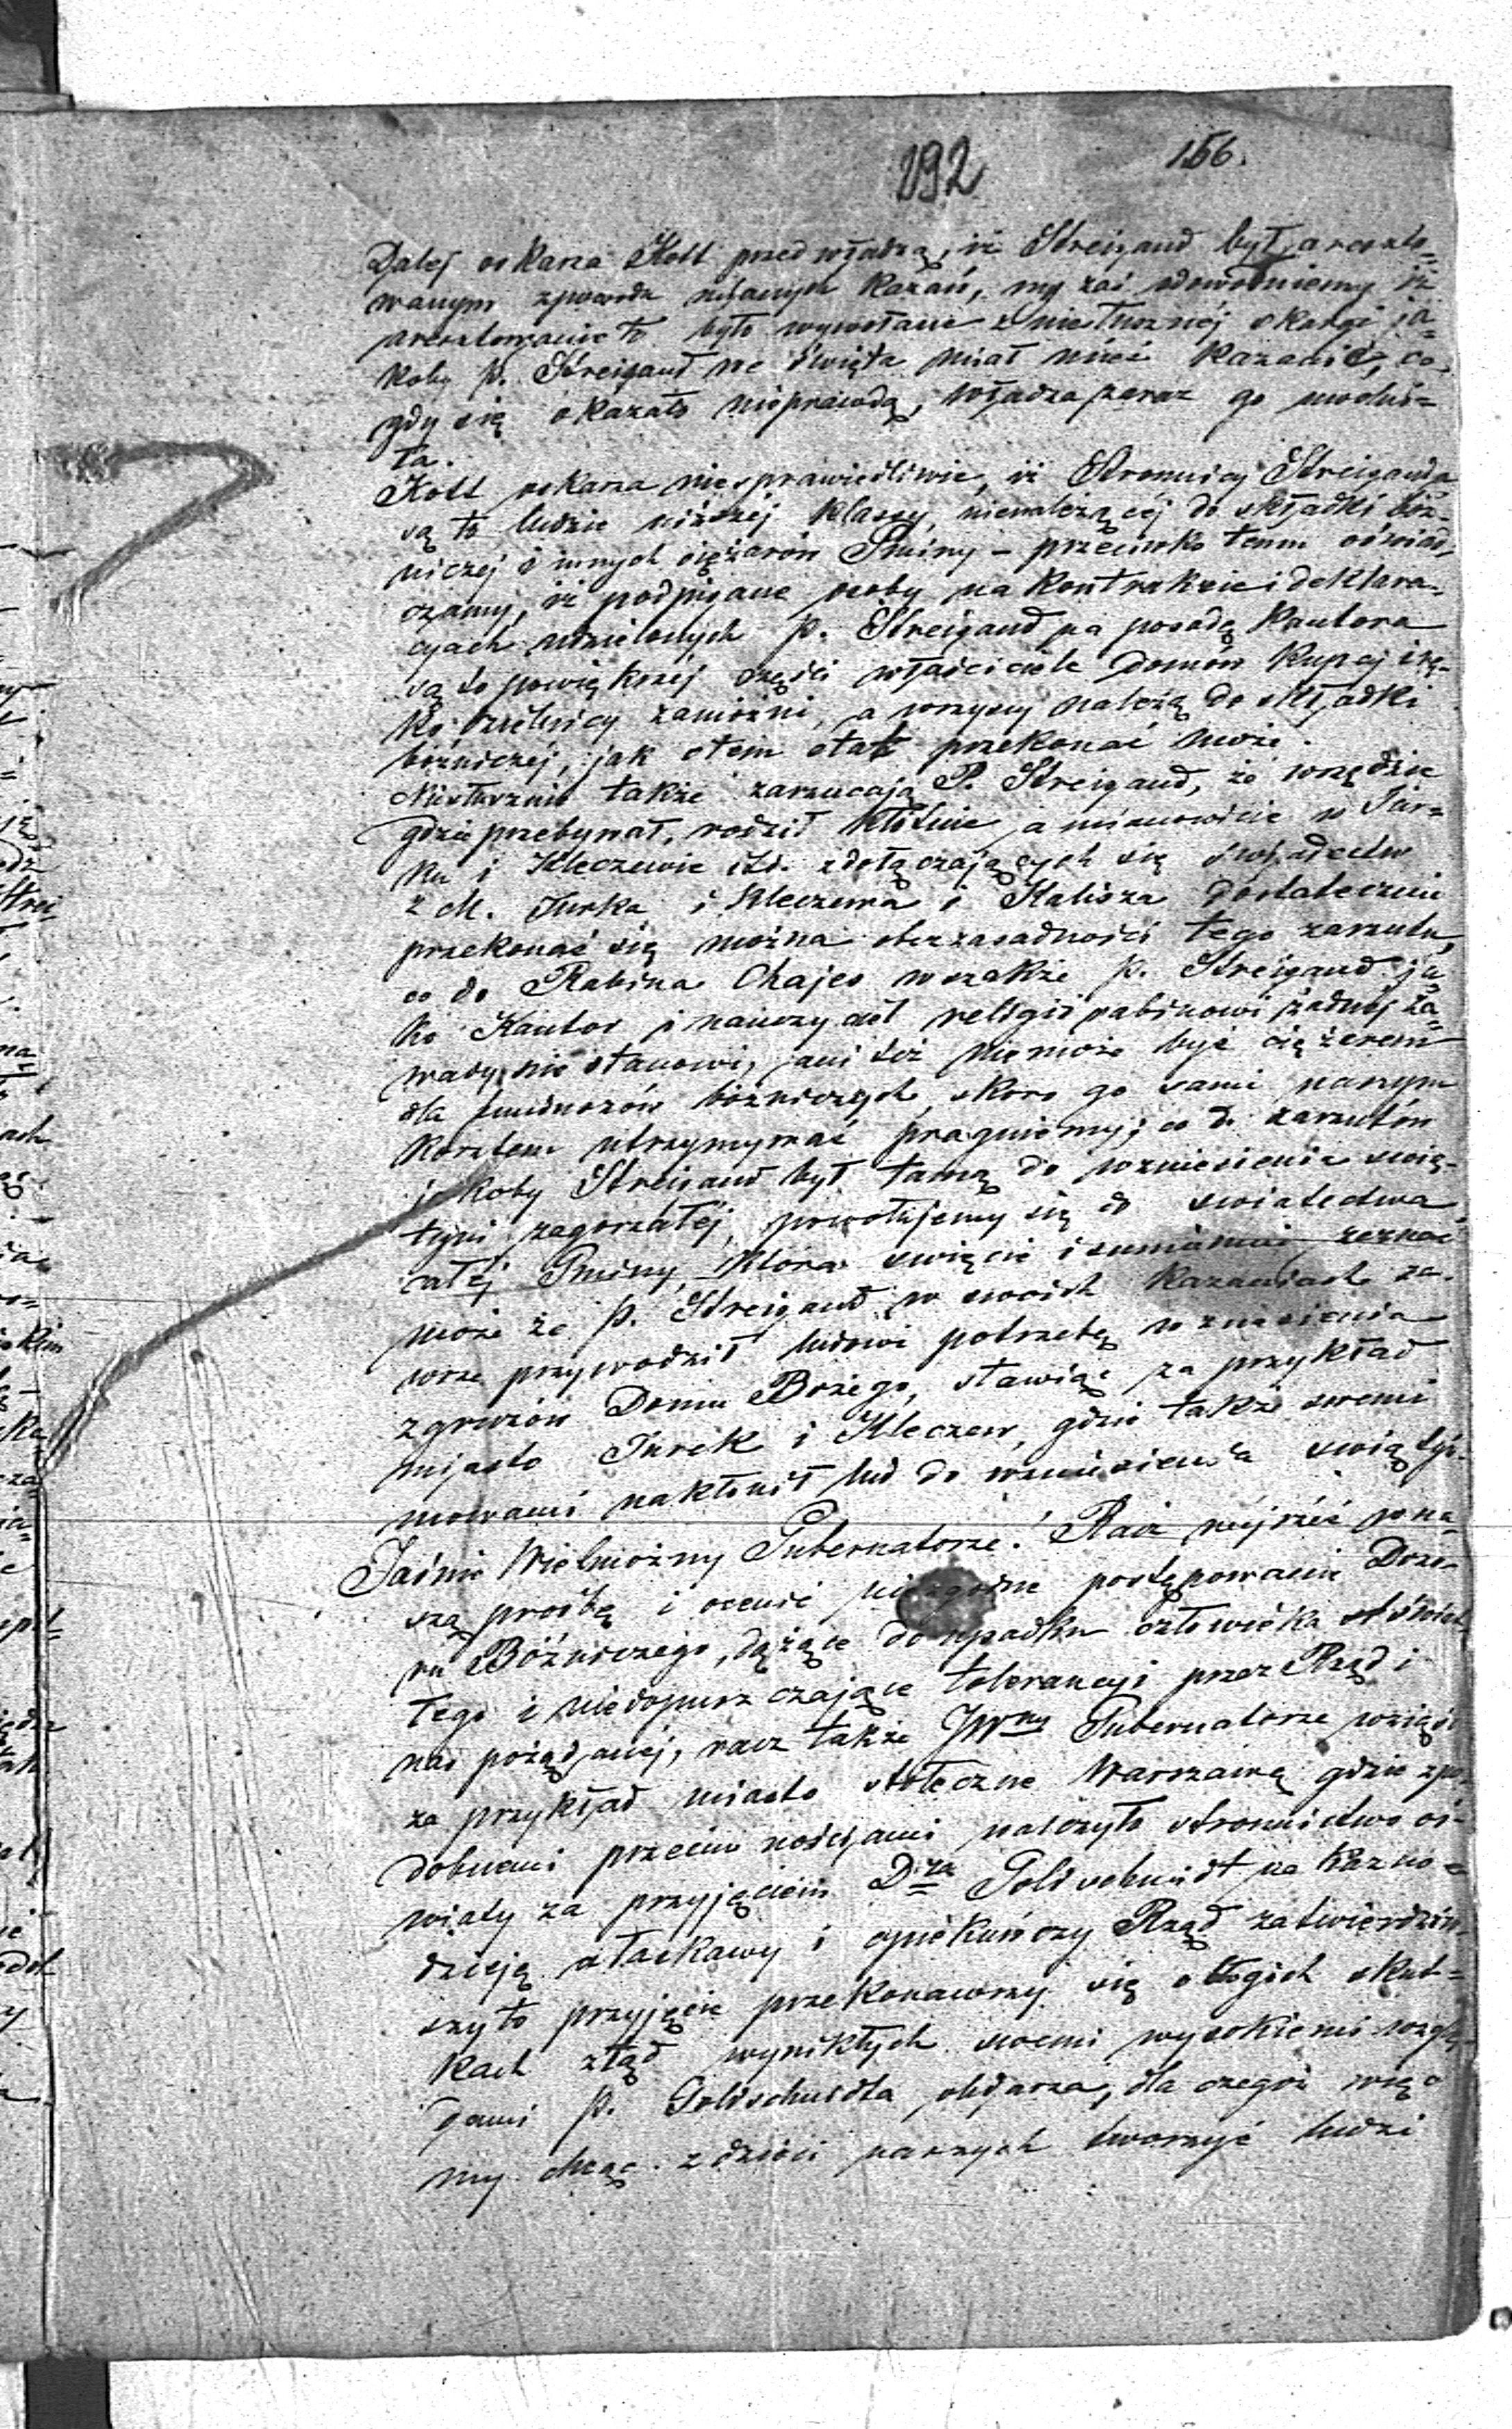 192 156.
Dalej oskarza Kott przed władzą, iż Streigand był areszto=
wanym zpowodu mianych kazań, my zaś udowodniemy iż
aresztowanie to było wywołane z niesłusznéj skargi ja=
koby p. Streigand we święta miał mieć kazanie, co
gdy się okazało nieprawdą, władza zaraz go uwolni=
ła.
Kott oskarza niesprawiedliwie, iż Stronnicy Streiganda
są to ludzie niższéj klassy, nienależącéj do składki bóż-
niczéj i innych ciężarów Gminy – przeciwko temu oświad-
czamy, iż podpisane osoby na kontrakcie i deklara-
cyach udzielonych p. Streigand na posadę Kantora
są to powiększéj części właściciele domów kupcy i rę-
ko dzielnicy zamożni, a wszyscy należą do składki
bóżniczéj, jak o tém etat przekonać może.
Niesłusznie także zarzucają P. Streigand, że wszędzie
gdzie przebywał, rodził kłótnie, a mianowicie w Tur=
ku i Kleczewie itd. z dołączających się świadectw
z M. Turka i Kleczewa i Kalisza dostatecznie
przekonać się można o bezzasadności tego zarzutu,
co do Rabina Chajes wszakże p. Streigand ja
ko Kantor i nauczyciel religii rabinowi żadnéj za=
wady nie stanowi, ani też nie może być ciężarem
dla funduszów bóżniczych, skoro go sami naszym
kosztem utrzymywać pragniemy; co do zarzutów
jakoby Streigand był tamą do wzniesienia świą-
tyni zagorzałéj, powołujemy się do świadectwa
całéj Gminy, która święcie i sumiennie zeznać
może że p. Streigand w swoich kazaniach za-
wsze przywodził ludowi potrzebę wzniesienia
z gruzów Domu Bożego, stawiąc za przykład
miasto Turek i Kleczew, gdzie także swemi
mowami nakłonił lud do wzniesienia świątyń.
Jaśnie Wielmożny Gubernatorze! Racz wejrzéć w na=
szą prośbę i ocenić niezgodne postępowanie Dozo-
ru Bóżniczego, dążące do upadku człowieka oświe-
tego i niedopuszczające tolerancyi przez Rząd i
nas pożądanéj, racz także JWny Gubernatorze wziąść
za przykład miasto stołeczne Warszawę gdzie z po-
dobnemi przeciwnościami walczyło stronnictwo oś-
wiaty za przyjęciem Dra Goldschmidt na kazno=
dzieję a łaskawy i opiekuńczy Rząd zatwierdziw-
szy to przyjęcie przekonawszy się o błogich skut=
kach ztąd wynikłych swemi wysokiemi wzglę-
dami p. Goldschmidta obdarza, dla czegóż więc
my chcąc z dzieci naszych tworzyć ludzi